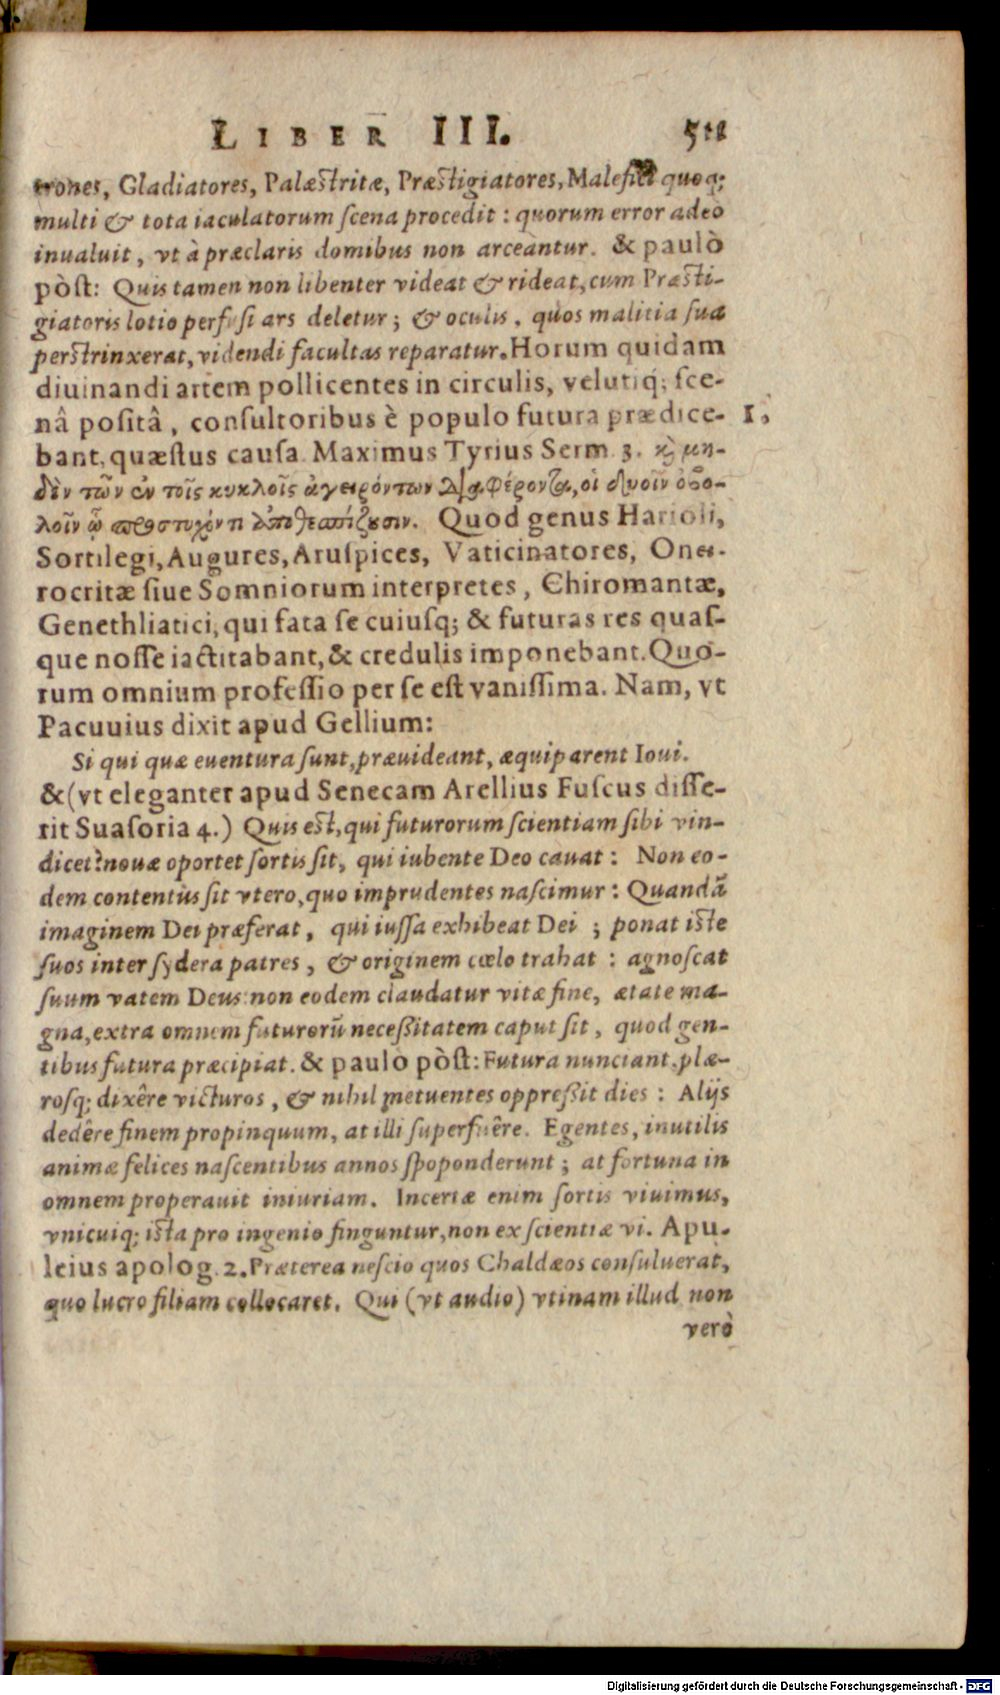 LIBER III. 511
trones, Gladiatores, Palæstritæ, Præstigiatores, Malefici quoq;
multi & tota iaculatorum scena procedit : quorum error adeò
inualuit, vt à præclaris domibus non arceantur. & paulò
pòst: Quis tamen non libenter videat & rideat, cum Præsti-
giatoris lotio perfusi ars deletur; & oculis, quos malitia sua
perstrinxerat, videndi facultas reparatur. Horum quidam
diuinandi artem pollicentes in circulis, velutiq; sce-
nâ positâ, consultoribus è populo futura prædice- 1.
bant, quæstus causa. Maximus Tyrius Serm. 3. κὶ μη-
δὲν τῶν ἐν τοῖς κυκλοῖς ἀγειρόντων Διαφέροντα, οἱ δυοῖν ὀβο-
λοῖν ᾧ προστυχόντι ἀποθεσπίζουσιν. Quod genus Harioli,
Sortilegi, Augures, Aruspices, Vaticinatores, Onei-
rocritæ siue Somniorum interpretes, Chiromantæ,
Genethliatici, qui fata se cuiusq; & futuras res quas-
que nosse iactitabant, & credulis imponebant. Quo-
rum omnium professio per se est vanissima. Nam, vt
Pacuuius dixit apud Gellium:
Si qui quæ euentura sunt, præuideant, æquiparent Ioui.
& (vt eleganter apud Senecam Arellius Fuscus disse-
rit Suasoria 4.) Quis est, qui futurorum scientiam sibi vin-
dicet? nouæ oportet sortis sit, qui iubente Deo cauat : Non eo-
dem contentus sit vtero, quo imprudentes nascimur : Quandã
imaginem Dei præferat, qui iussa exhibeat Dei ; ponat iste
suos inter sydera patres, & originem cœlo trahat : agnoscat
suum vatem Deus: non eodem claudatur vitæ fine, ætate ma-
gna, extra omnem futurorũ necessitatem caput sit, quod gen-
tibus futura præcipiat. & paulò pòst: Futura nunciant, plæ-
rosq; dixêre victuros, & nihil metuentes oppressit dies : Alijs
dedêre finem propinquum, at illi superfuêre. Egentes, inutilis
animæ felices nascentibus annos spoponderunt ; at fortuna in
omnem properauit iniuriam. Incertæ enim sortis viuimus,
vnicuiq; ista pro ingenio finguntur, non ex scientiæ vi. Apu-
leius apolog. 2. Præterea nescio quos Chaldæos consuluerat,
quo lucro filiam collocaret. Qui (vt audio) vtinam illud non
verò
Digitalisierung gefördert durch die Deutsche Forschungsgemeinschaft - DFG